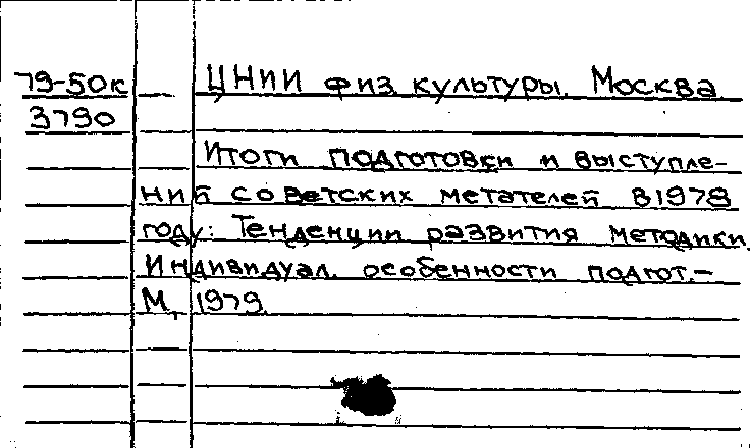 79-50к ЦНИИ физ. культуры. Москва
3790
Итоги подготовки и выступле-
ний советских метателей в 1978
году: Тенденции развития методики.
Индивидуал. особенности подгот.-
М, 1979.